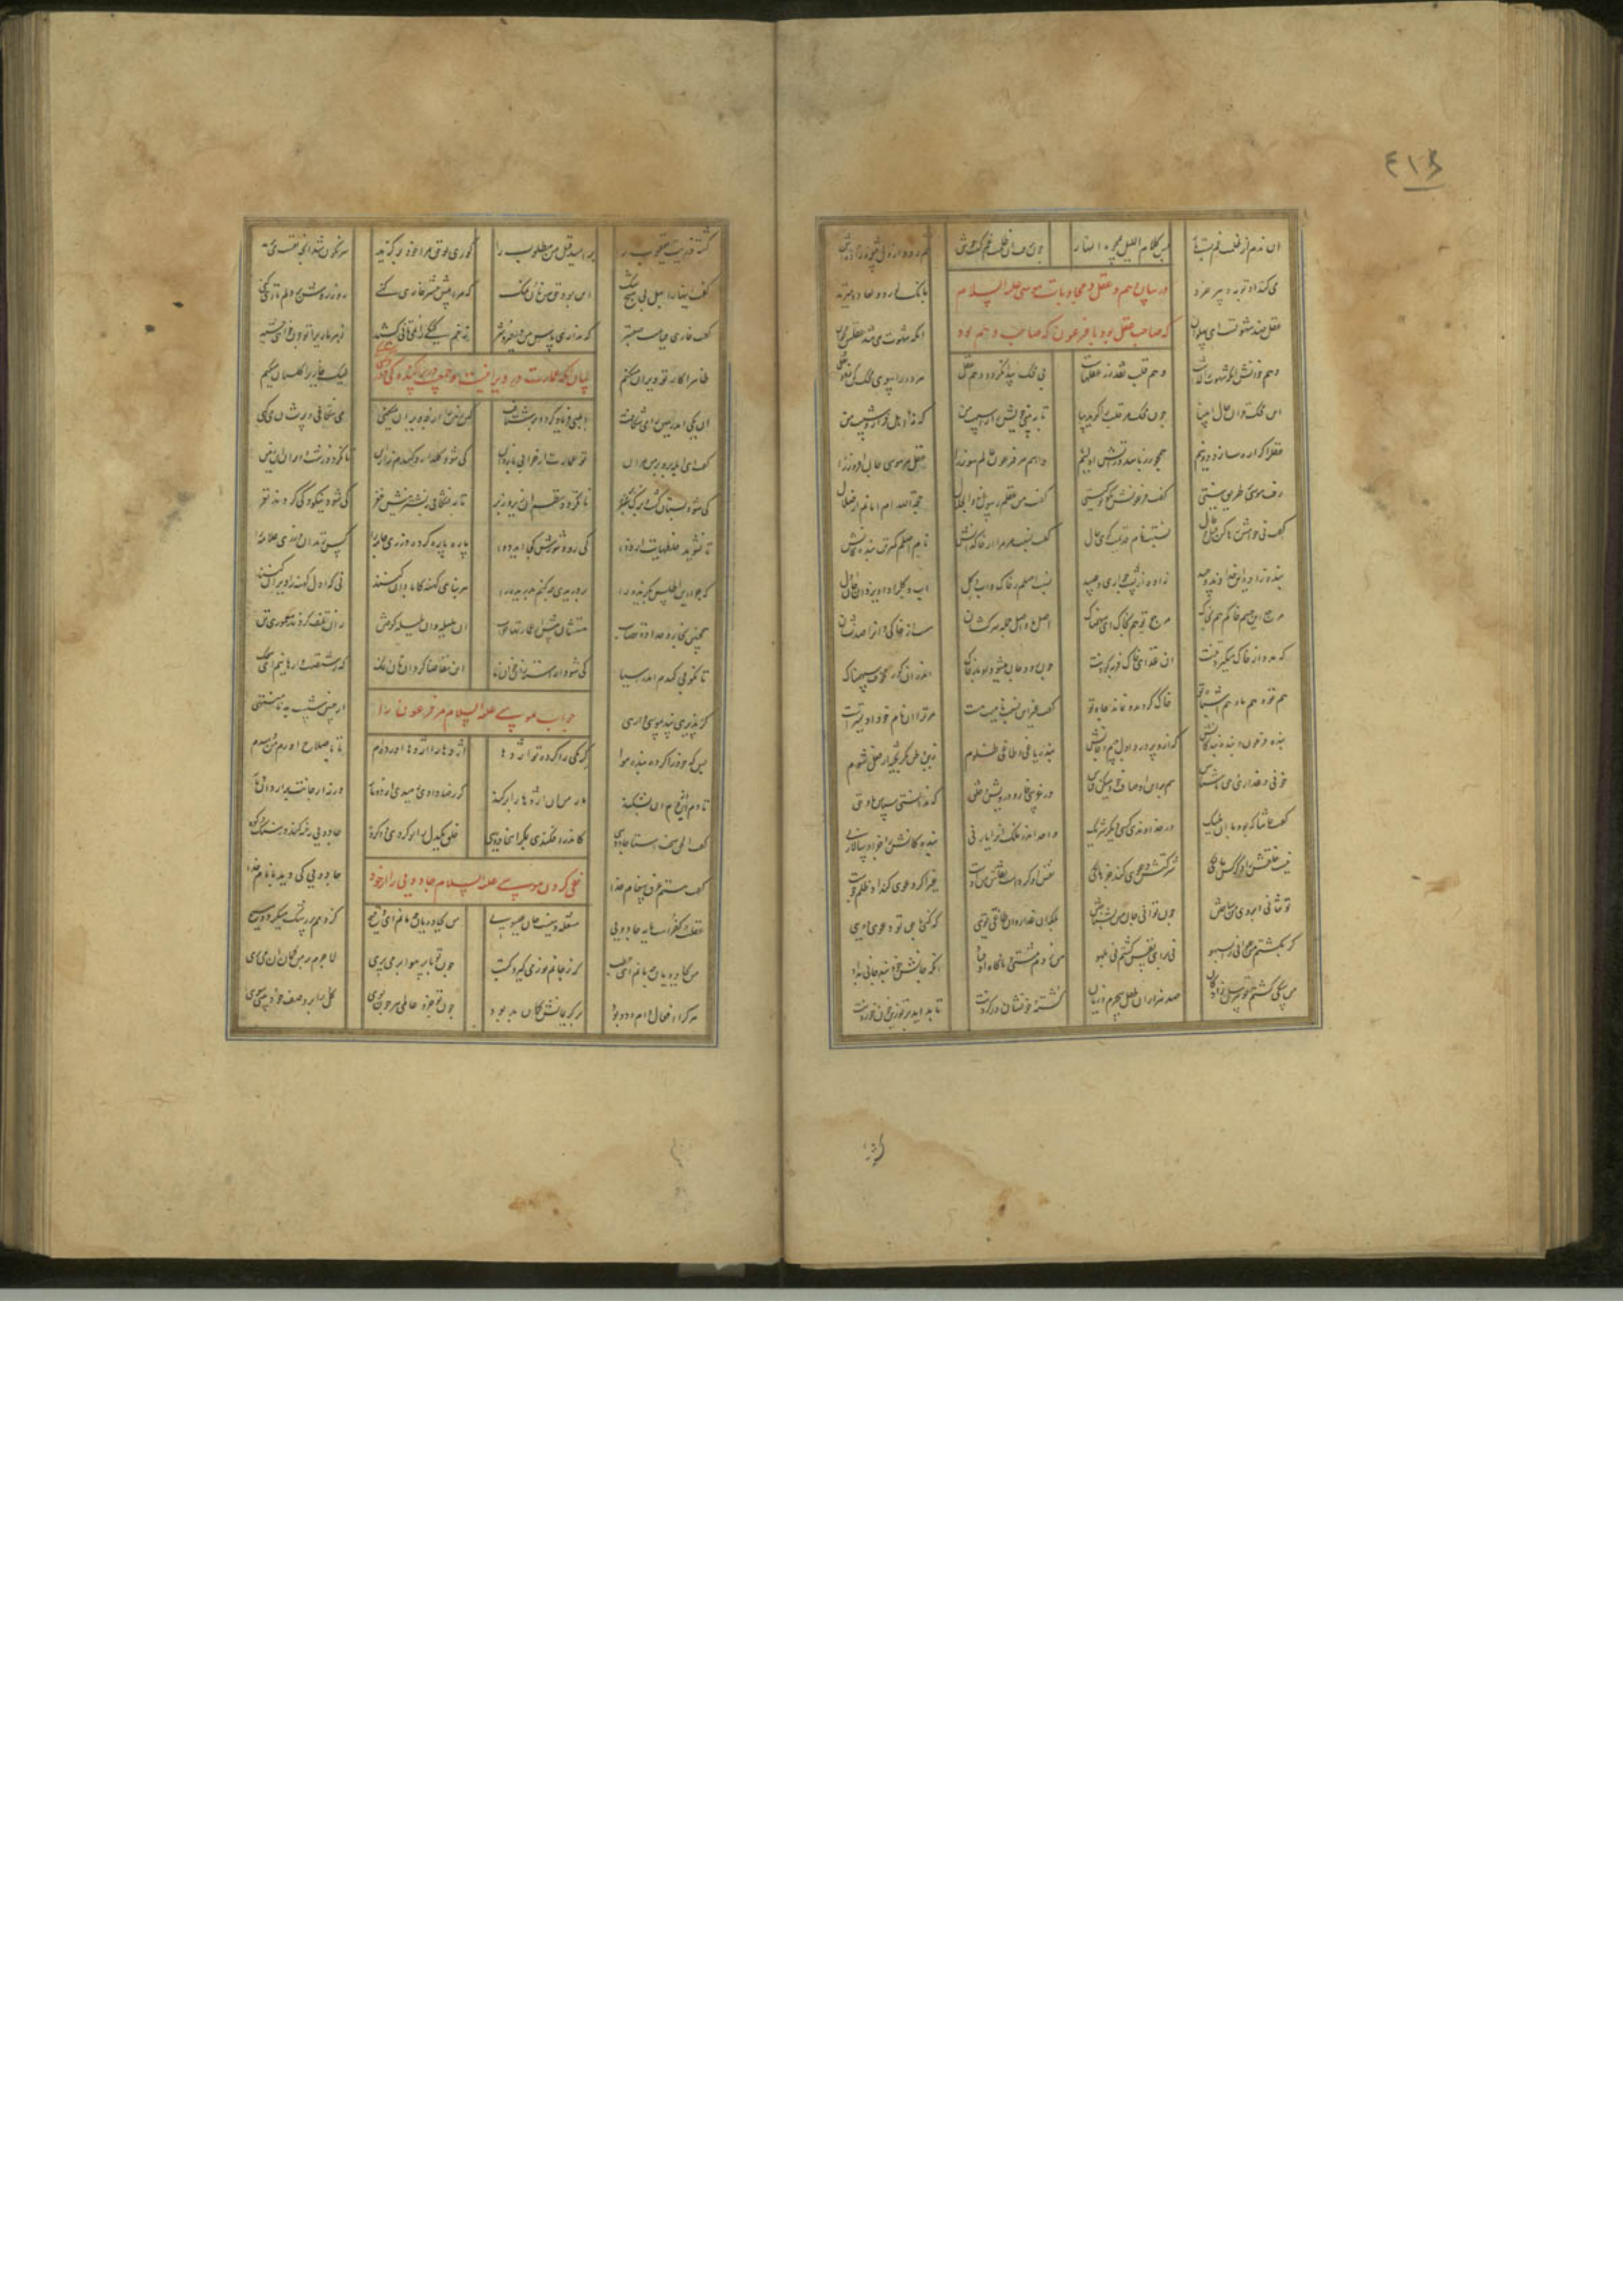 ٤١٤
ان ندم از ظلمت غم بست بار پس کلام اللیل یمحوه النهار
چون برفت ان ظلمت غم گشت خوش هم رود از دل نتیجه و زاده‌اش
می کند او توبه و پیر خرد بانگ لو ردوا لعادوا میزند
در بیان وهم و عقل و مجاوبات موسی علیه السلام
که صاحب عقل بود با فرعون که صاحب وهم بود
عقل ضد شهوتست ای پهلوان انکه شهوت می تند عقلش مخوان
وهم خوانش انکه شهوت را گداست وهم قلب نقد زر عقلهاست
بی محک پیدا نگردد وهم و عقل هر دو را سوی محک کن نقل
این محک قران و حال انبیا چون محک مر قلب را گوید بیا
تا به بینی خویش را ز اسیب من که نه اهل فراز و شیب من
عقل را گر اره سازد دو نیم همچو زر باشد در اتش او بسیم
وهم مر فرعون عالم سوز را عقل مر موسی جان افروز را
رفت موسی بر طریق نیستی گفت فرعونش بگو تو کیستی
گفت من عقلم رسول ذوالجلال حجة الله ام امانم از ضلال
گفت نی خامش رها کن نسبت نام قدیمت گوی حال
گفت نسبت مر مرا از خاکدانش نام اصلم کمترین بندگانش
بنده زاده این خداوند وحید زاده از پشت جواری و عبید
نسبت اصلم ز خاک و اب و گل اب و گل را داد یزدان جان و دل
مرجع این جسم خاکم هم بخاک مرجع تو هم بخاک ای سهمناک
اصل ما و اصل جمله سرکشان از خاکی و انرا صد نشان
که مدد از خاک میگیرد تنت از غذای خاک فربه گردنت
چون رود جان میشود او باز خاک اندر ان گور مخوف سهمناک
هم تو و هم ما و هم اشباه تو خاک گردند و نماند جاه تو
گفت غیر این نسب نامیت هست مر ترا ان نام خود اولیترست
بنده فرعون و بنده بندگانش که ازو پرورد اول جسم و جانش
بنده یاغی و طاغی ظلوم زین وطن بگریخته از فعل شوم
خونی و غداری و حق ناشناس هم برین اوصاف خود میکن قیاس
در غریبی خوار و درویش و خلق که ندانستی سپاس ما و حق
گفت حاشا که بود با ان ملیک در خداوندی کسی دیگر شریک
واحد اندر ملک او را یار نی بندگانش را جز او سالار نی
نیست خلقش را دگر کس مالکی شرکتش دعوی کند جز هالکی
نقش او کردست و نقاش من اوست غیر اگر دعوی کند او ظلم جوست
تو نتانی ابروی من ساختن چون توانی جان من بشناختن
بلکه ان غدار و ان طاغی توی که کنی با حق تو دعوی دوی
گر بکشتم من عوانی را بسهو نی برای نفس کشتم نی بلهو
من زدم مشتی و ناگاه او فتاد انکه جانش خود نبد جانی بداد
من سگی کشتم تو مرسل زادگان صد هزاران طفل بی جرم و زیان
کشته و خونشان در گردنت تا چه اید بر تو زین خون خوردنت
کشته ذریت یعقوب را بر امید قتل من مطلوب را
کوری تو حق مرا خود برگزید سرنگون شد انچه نفست می
گفت اینها را بهل بی هیچ شک این بود حق من و نان و نمک
که مرا پیش حشر خواری کنی روز روشن بر دلم تاری کنی
گفت خواری قیامت صعبتر که نداری پاس من در خیر و شر
زخم کیکی را نمی تانی کشید زهر ماری را تو چون خواهی چشید
بیان انکه عمارت در ویرانیست و جمعیت در پراکندگی
ظاهرا کار تو ویران میکنم لیک خاری را گلستان میکنم
ان یکی امد زمین را می شکافت ابلهی فریاد کرد و بر نتافت
کین زمین را از چه ویران میکنی می شکافی و پریشان میکنی
گفت ای ابله برو بر من مران تو عمارت از خرابی باز دان
کی شود گلزار و گندم زار این تا نگردد زشت و ویران این زمین
کی شود بستان و کشت و برگ و بر تا نگردد نظم او زیر و زبر
تا بنشکافی بنشتر ریش چغز کی شود نیکو و کی گردید نغز
تا نشوید خلطهایت از دوا کی رود شورش کجا اید
پاره پاره کرده درزی جامه را کس زند ان درزی علامه را
که چرا این اطلس بگزیده را بردریدی چه کنم بدریده را
هر بنای کهنه کابادان کنند نی که اول کهنه را ویران کنند
همچنین نجار و حداد و قصاب هستشان پیش از عمارتها خراب
ان هلیله وان بلیله کوفتن زان تلف گردند معموری تن
تا نکوبی گندم اندر اسیا کی شود اراسته زان خوان ما
ان تقاضا کرد ان نان و نمک که ز شستت وا رهانم ای سمک
گر پذیری پند موسی وا رهی از چنین شست بد نامنتهی
جواب موسی علیه السلام مر فرعون را
بس که خود را کرده بنده هوا کرمکی را کرده تو اژدها
اژدها را اژدها اورده ام تا باصلاح اورم من دم بدم
تا دم ان از دم این بشکند مار من ان اژدها را برکند
گر رضا دادی رهیدی از دو مار ورنه از جانت برارد ان دمار
گفت الحق سخت استا جادوی که در افکندی بمکر اینجا دوی
خلق یکدل را تو کردی دو گروه جادویی رخنه کند در سنگ و کوه
نفی کردن موسی علیه السلام جادویی را از خود
گفت هستم غرق پیغام خدا جادویی کی دید با نام خدا
غفلت و کفرست مایه جادویی مشعله دینست جان موسوی
من بجادویان چه مانم ای وقیح کز دمم پر رشک میگردد مسیح
من بجادویان چه مانم ای جنب که ز جانم نور میگیرد کتب
چون تو با پر هوا بر می پری لاجرم بر من گمان ان می بری
هر کرا افعال دام و دد بود بر کریمانش گمان بد بود
چون تو جزو عالمی هر چون بوی کل را بر وصف خود بینی سوی